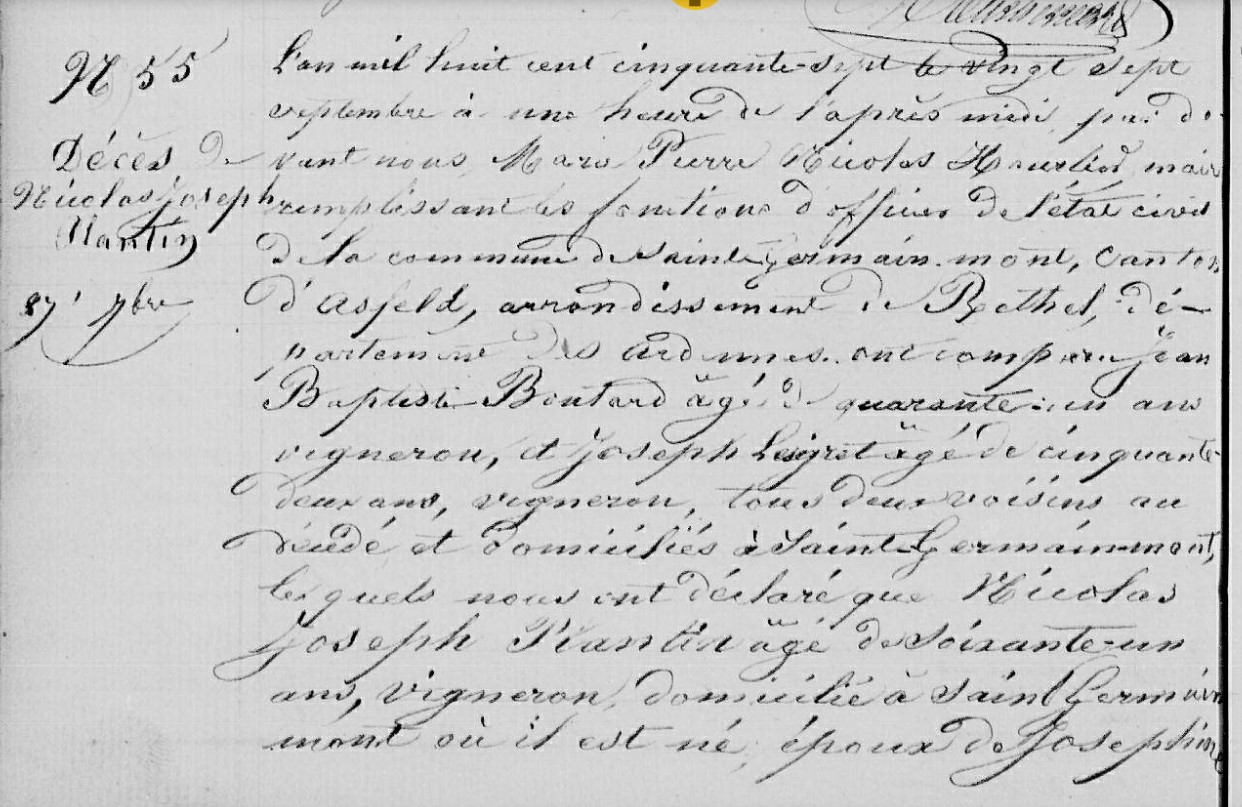 N 55
Décès de
Nicolas Joseph
Plantin
27 7bre
L'an mil huit cent cinquante-sept le vingt sept
septembre à une heure de l'après midi, par de-
vant nous, Marc Pierre Nicolas maire
remplissant les fonctions d'officier de l'état civil
de la commune de Saint-Germain-mont, canton
d'Asfeld, arrondissement de Rethel, dé-
partement des Ardennes. ont comparu Jean
Baptiste Boutard âgé de quarante-un ans
vigneron, et Joseph âgé de cinquante-
deux ans, vigneron, tous deux voisins au
décédé et domiciliés à Saint-Germain-mont,
lesquels nous ont déclaré que Nicolas
Joseph Plantin âgé de soixante-un
ans, vigneron, domicilié à Saint Germain
mont où il est né, époux de Joséphine